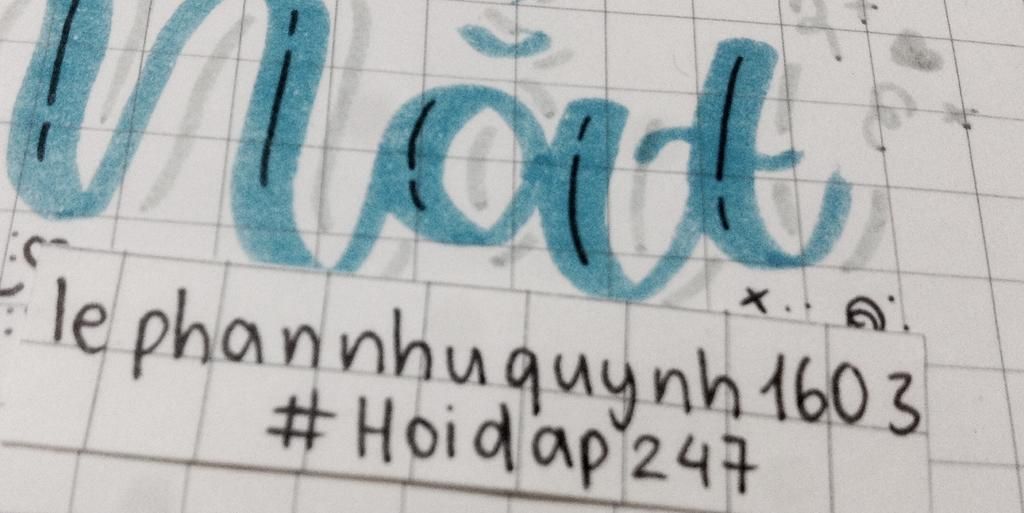 lephannhuquynh1603
#Hoidap247